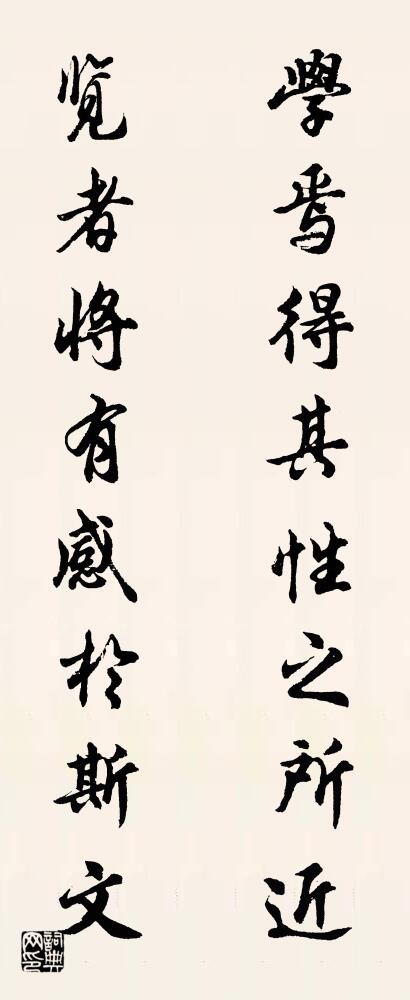 學焉得其性之所近
覽者將有感於斯文